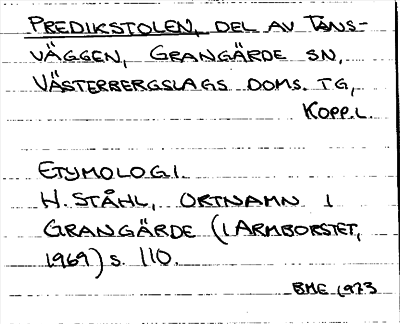 PREDIKSTOLEN, DEL AV TÄNS-
VÄGGEN, GRANGÄRDE SN,
VÄSTERBERGSLAGS DOMS. TG,
KOPP.L.
ETYMOLOGI.
H. STÅHL, ORTNAMN I
GRANGÄRDE (I ARMBORSTET,
1969) S. 110.
BME 1973